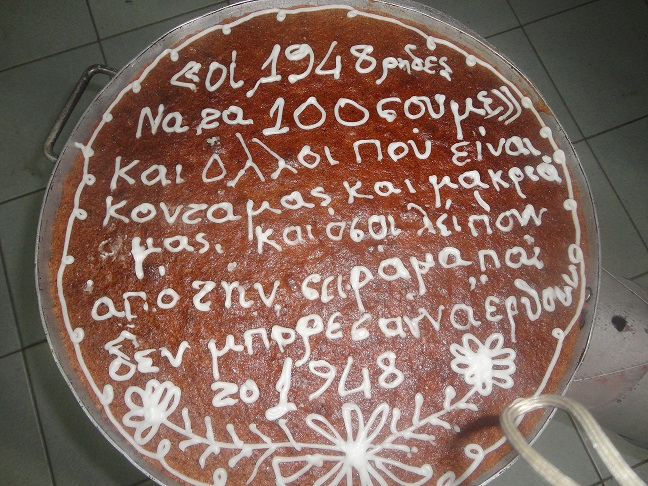 «Οἱ 1948 ρηδες
Να τα 100σουμε»
Και ὁλλοι που είναι
κοντα μας και μακρεά
μας. και όσοι λείπον
από την σειράμα, παι
δεν μπορεσαν να ερθουν
το 1948